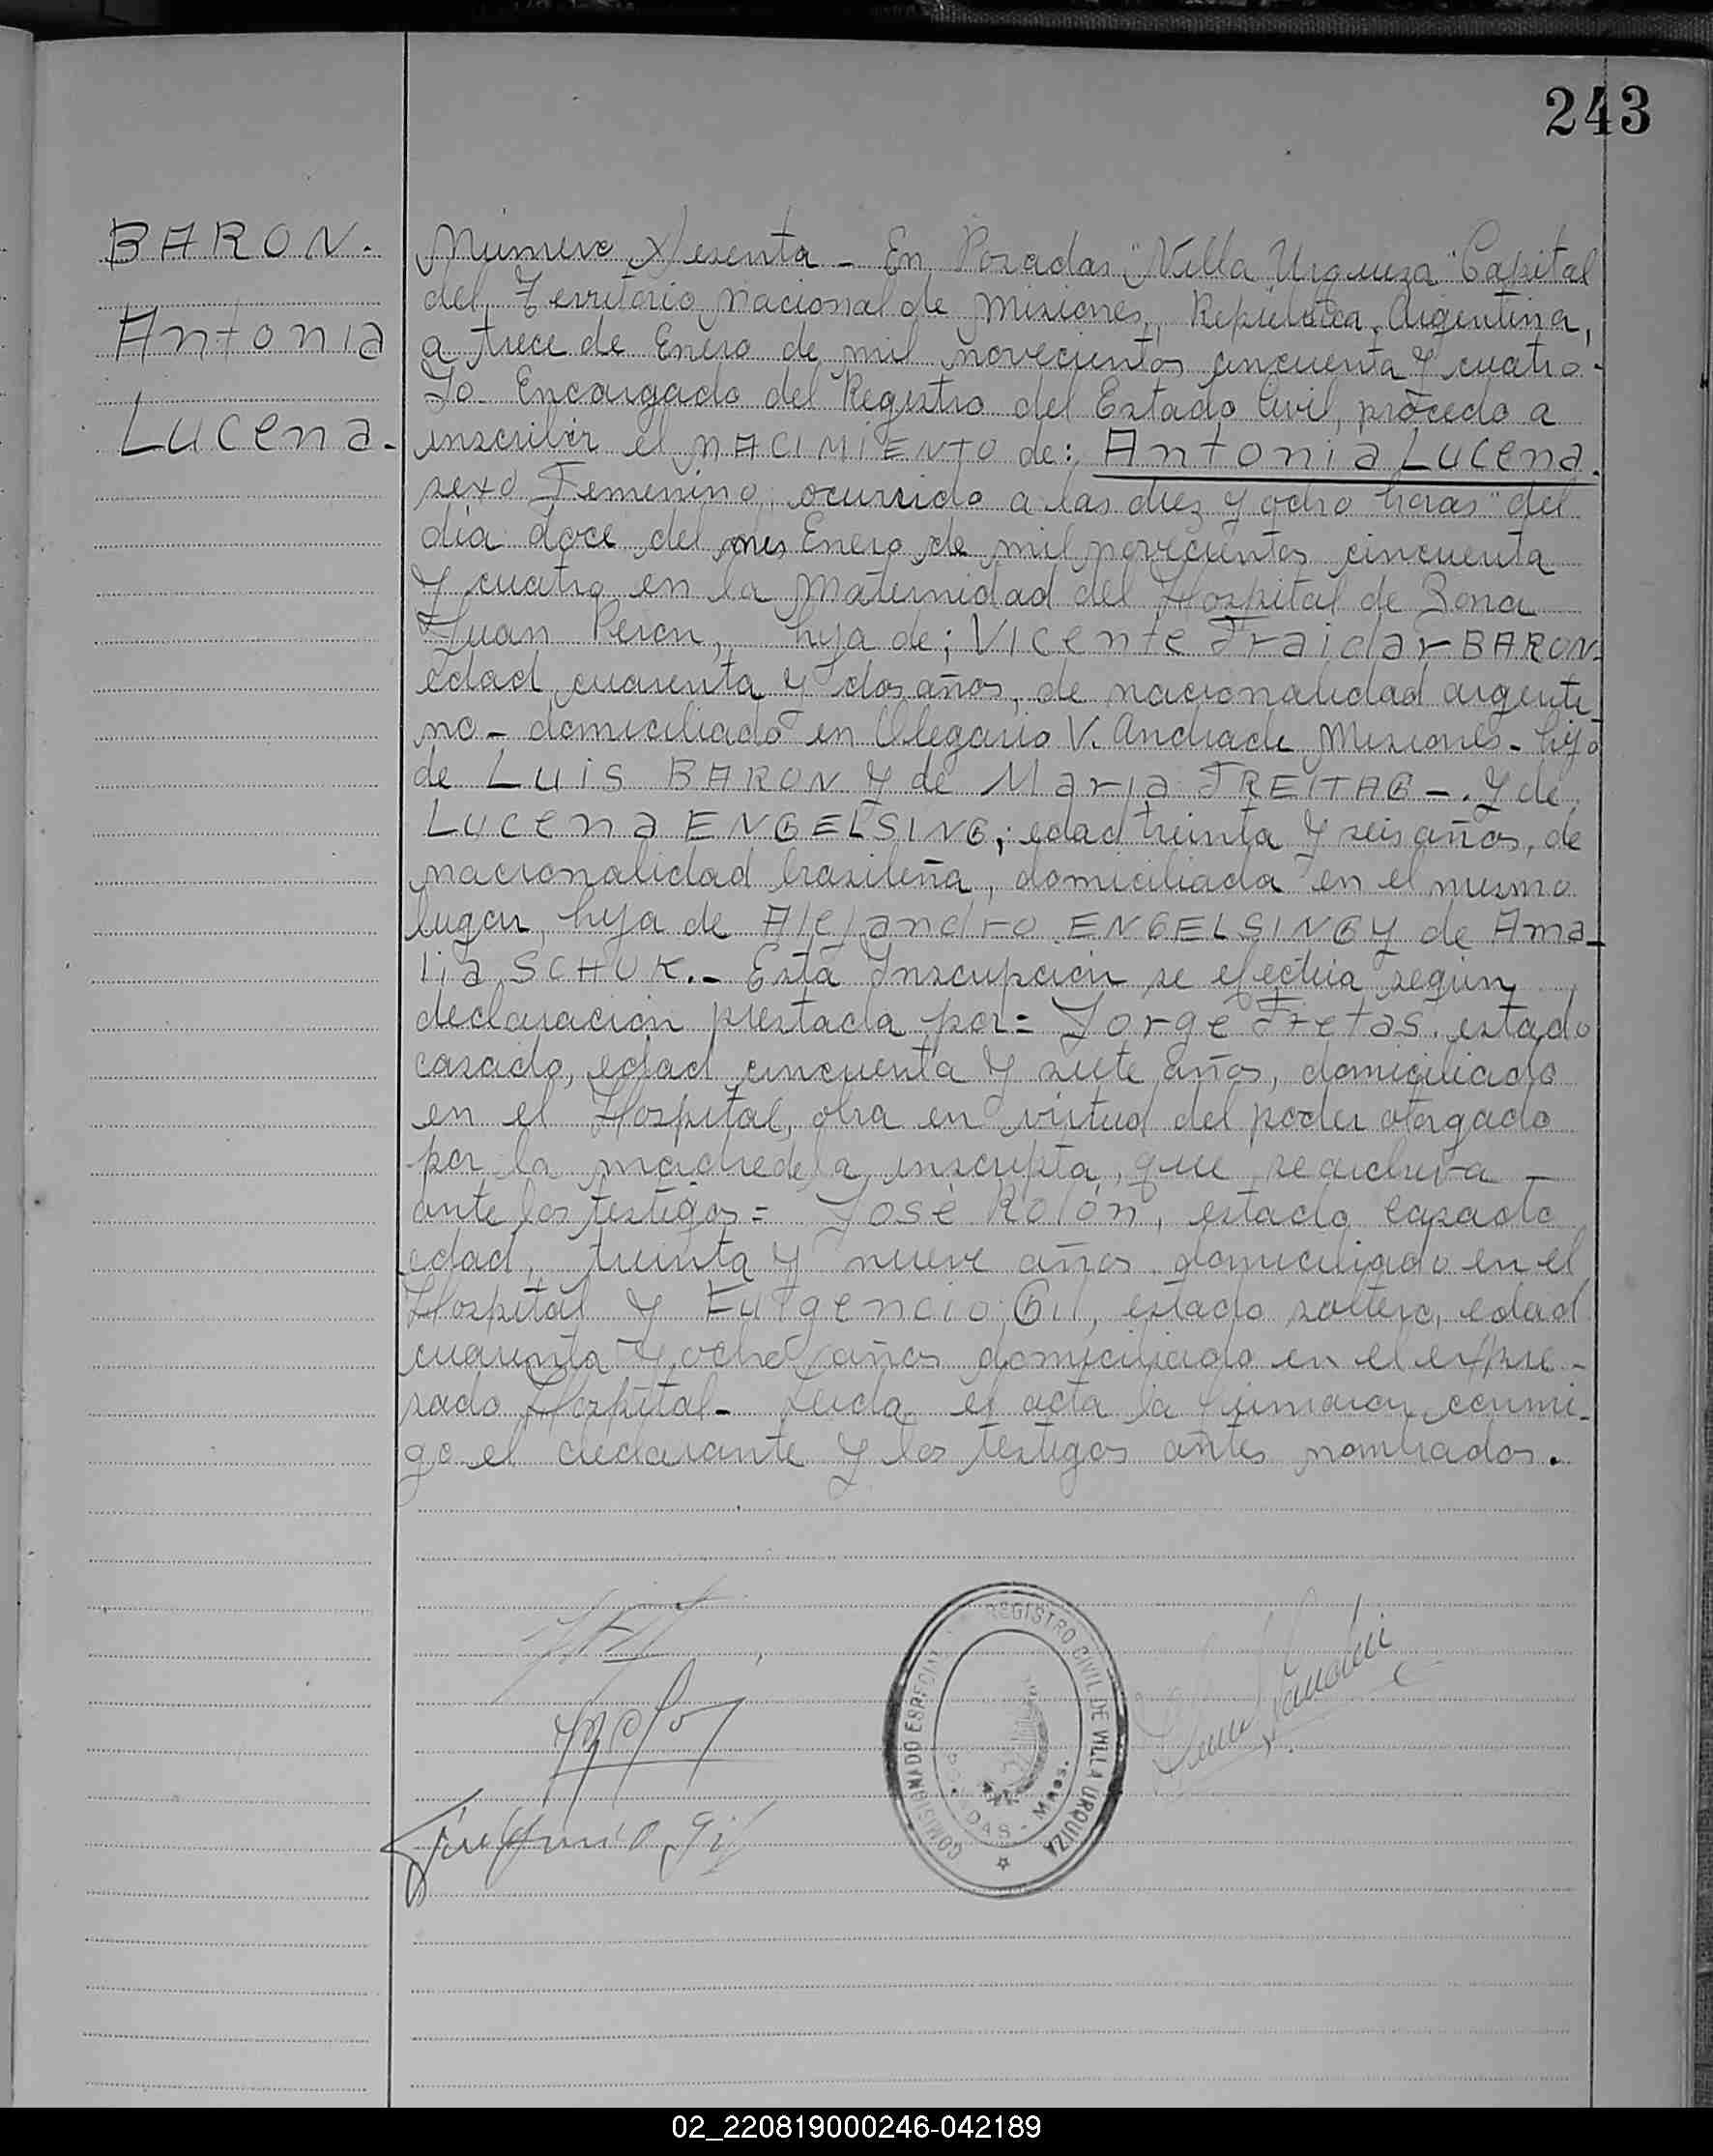 243
BARON.
Antonia
Lucena.
Número Sesenta - En Posadas "Villa Urquiza" Capital
del Territorio Nacional de Misiones, República Argentina,
a trece de Enero de mil novecientos cincuenta y cuatro.
Yo Encargado del Registro del Estado Civil, procedo a
inscribir el NACIMIENTO de: Antonia Lucena.
sexo Femenino, ocurrido a las diez y ocho horas del
día doce del mes Enero de mil novecientos cincuenta
y cuatro en la Maternidad del Hospital de Zona
Juan Peron, hija de; Vicente Fraidar BARON.
edad cuarenta y dos años, de nacionalidad argenti
no - domiciliado en Olegario V. Andrade Misiones - hijo
de Luis BARON y de Maria FREITAG -. y de
Lucena ENGELSING; edad treinta y seis años, de
nacionalidad brasileña, domiciliada en el mismo
lugar, hija de Alejandro ENGELSING y de Ama-
lia SCHUK.- Esta Inscripción se efectúa según
declaración prestada por = Jorge Fretas. estado
casado, edad cincuenta y siete años, domiciliado
en el Hospital, obra en virtud del poder otorgado
por la madre de la inscripta, que se archiva -
ante los testigos = José Rolón, estado casado
edad, treinta y nueve años domiciliado en el
Hospital y Fulgencio Gil, estado soltero, edad
cuarenta y ocho años domiciliado en el expre-
sado Hospital - Leida el acta la firmaron conmi-
go el declarante y los testigos antes nombrados.
COMISIONADO ESPECIAL REGISTRO CIVIL DE VILLA URQUIZA
POSADAS - Mnes.
02_220819000246-042189